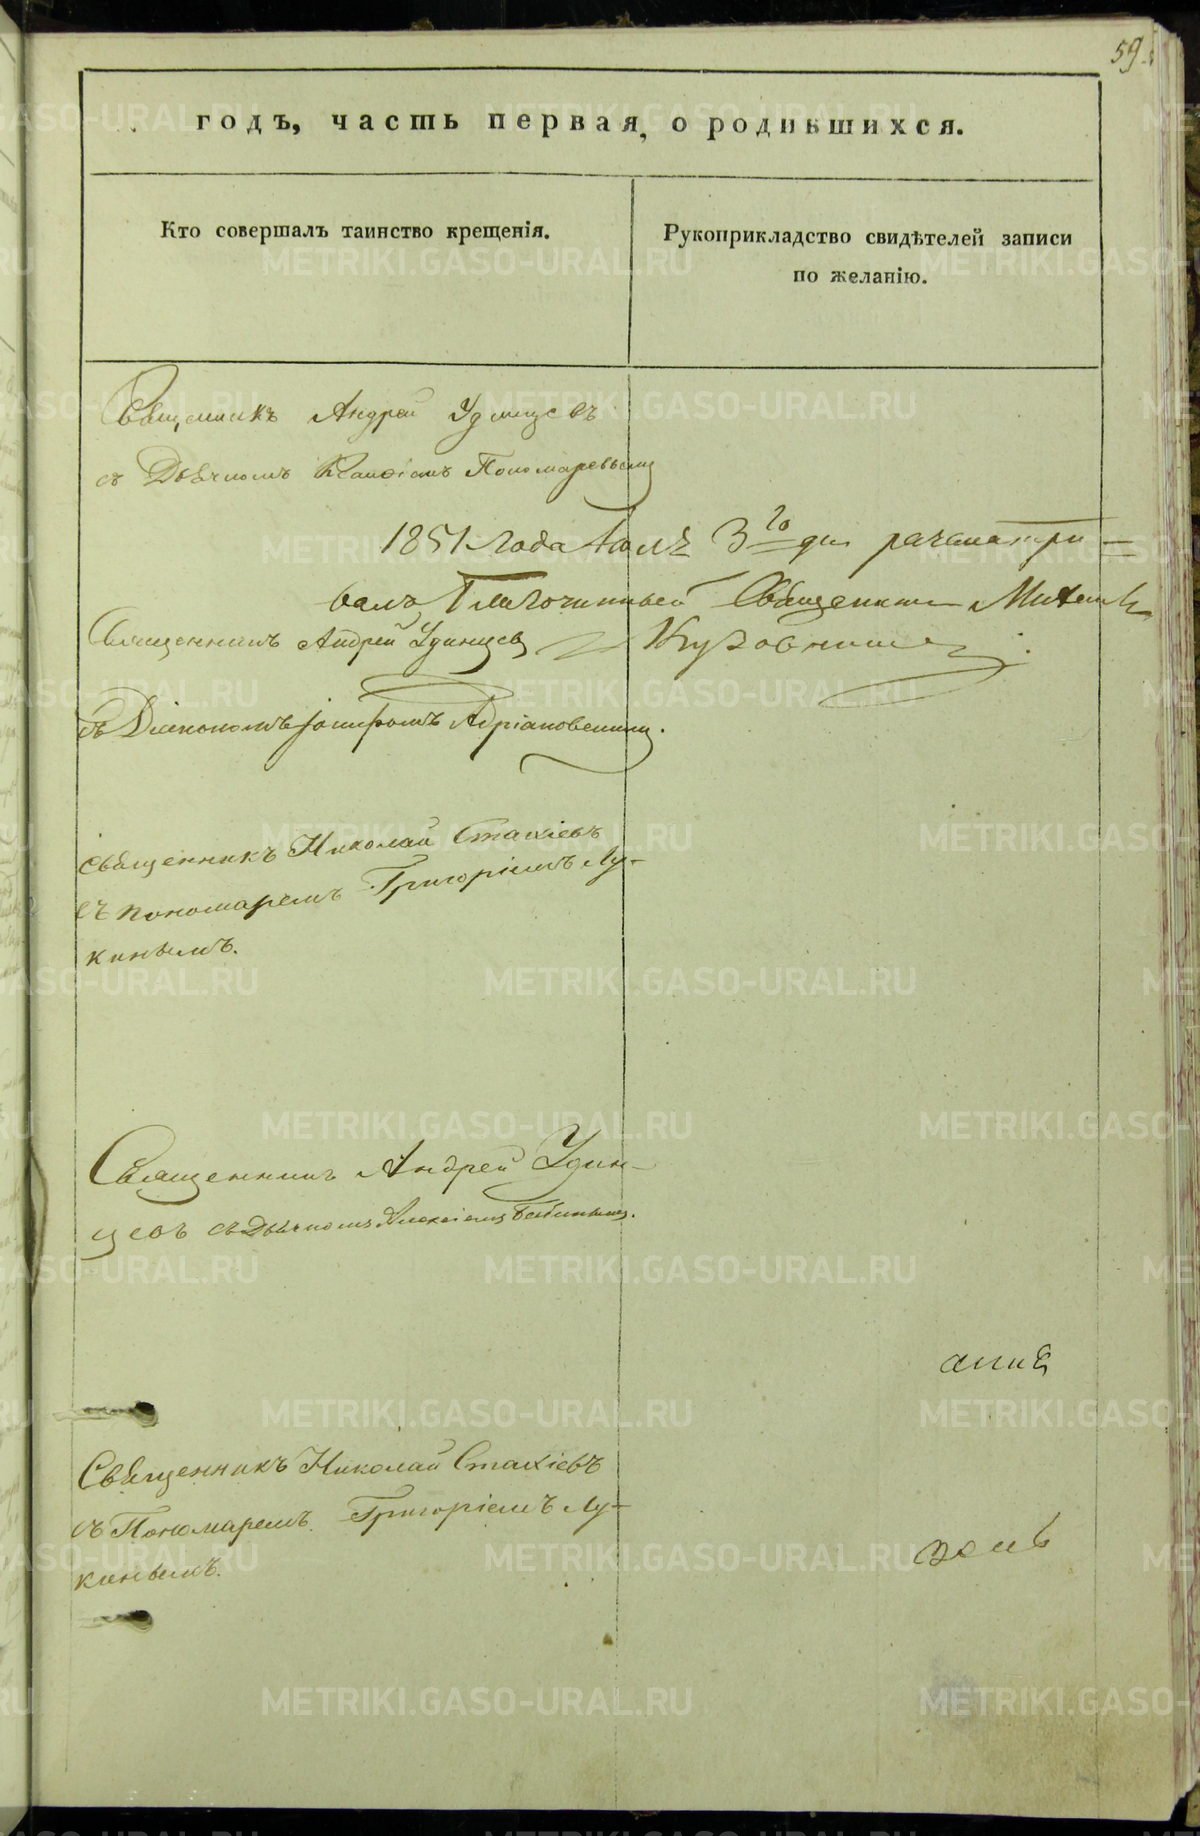 59.
годъ, часть первая, о родившихся.
Кто совершалъ таинство крещенія.
Рукоприкладство свидѣтелей записи
по желанію.
Священникъ Андрей Удинцевъ
съ Дьячкомъ Пономаревымъ
1851 года Іюля 3го дня разсматри-
валъ Благочинный Священникъ Михаилъ
Священникъ Андрей Удинцев
съ Діакономъ Іосифомъ Адріановскимъ.
Священникъ Николай Стахіевъ
съ пономаремъ Григоріемъ Лу-
кинымъ.
Священникъ Андрей Удин-
цевъ съ Дьячкомъ Алексіемъ Бабинымъ.
Священникъ Николай Стахіевъ
съ Пономаремъ Григоріемъ Лу-
кинымъ.
METRIKI.GASO-URAL.RU